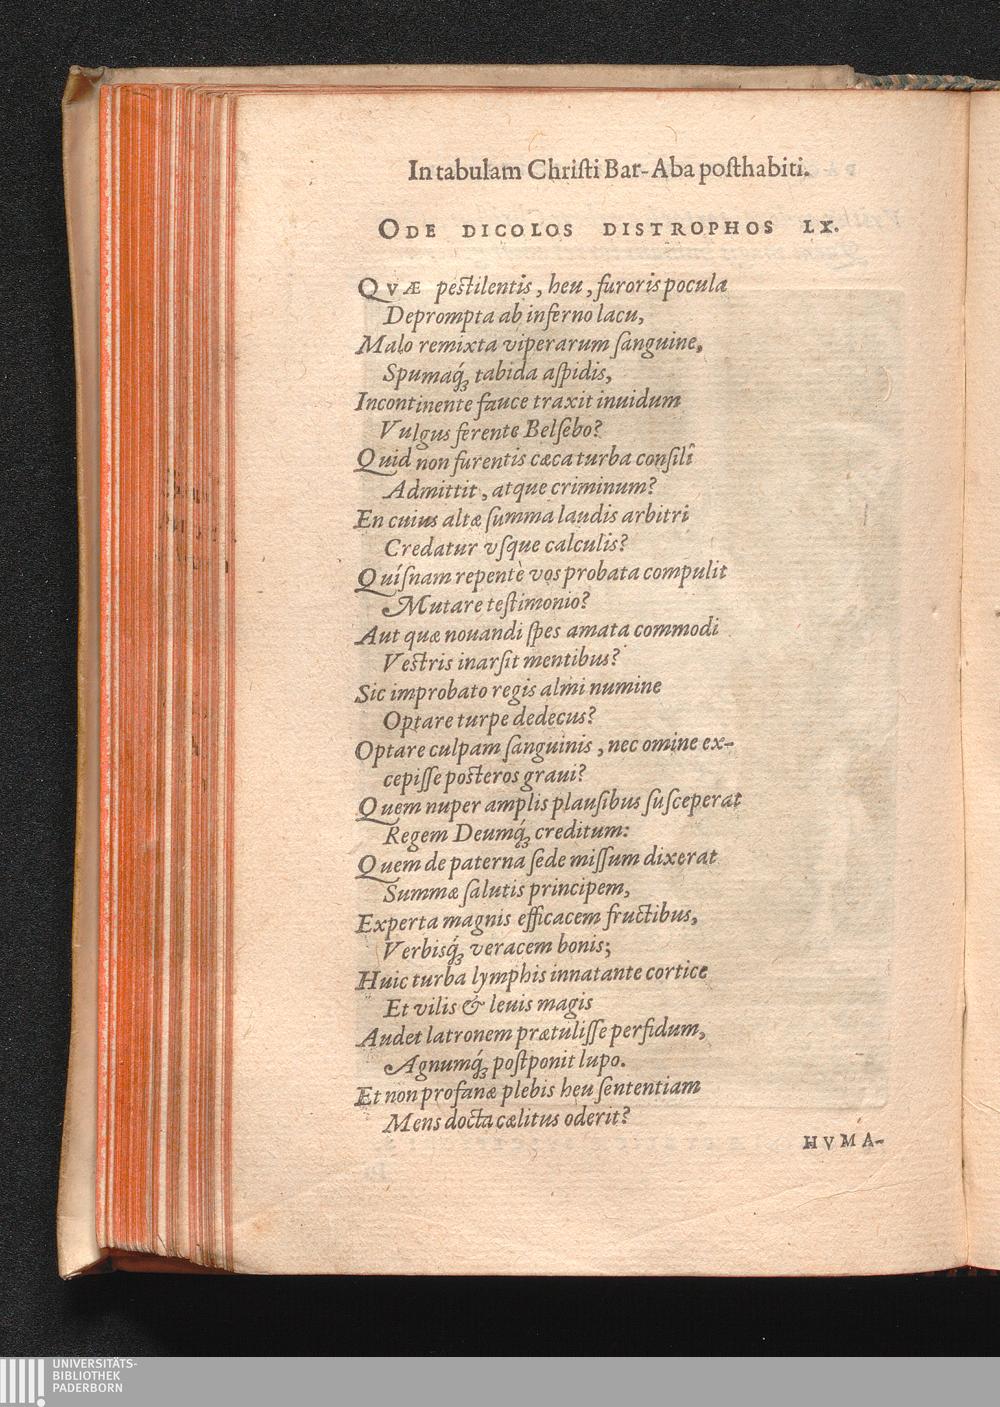 In tabulam Christi Bar-Aba posthabiti.
ODE DICOLOS DISTROPHOS LX.
QVÆ pestilentis, heu, furoris pocula
Deprompta ab inferno lacu,
Malo remixta viperarum sanguine,
Spumaq́ꝫ tabida aspidis,
Incontinente fauce traxit inuidum
Vulgus ferente Belsebo?
Quid non furentis cæca turba consilî
Admittit, atque criminum?
En cuius altæ summa laudis arbitri
Credatur vsque calculis?
Quísnam repentè vos probata compulit
Mutare testimonio?
Aut quæ nouandi spes amata commodi
Vestris inarsit mentibus?
Sic improbato regis almi numine
Optare turpe dedecus?
Optare culpam sanguinis, nec omine ex-
cepisse posteros graui?
Quem nuper amplis plausibus susceperat
Regem Deumq́ꝫ creditum:
Quem de paterna sede missum dixerat
Summæ salutis principem,
Experta magnis efficacem fructibus,
Verbisq́ꝫ veracem bonis;
Huic turba lymphis innatante cortice
Et vilis & leuis magis
Audet latronem prætulisse perfidum,
Agnumq́ꝫ postponit lupo.
Et non profanæ plebis heu sententiam
Mens docta cælitus oderit?
HVMA-
UNIVERSITÄTS-
BIBLIOTHEK
PADERBORN